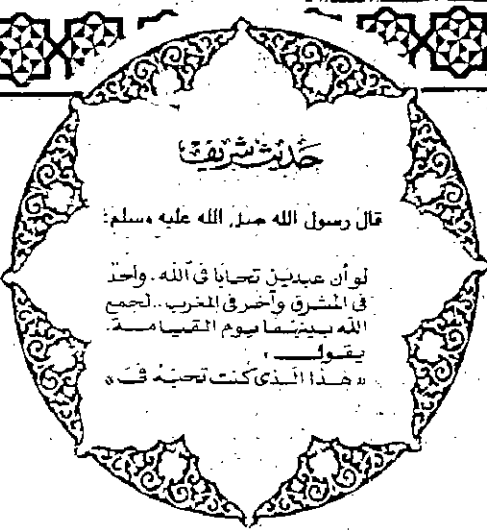 حديث شريف
قال رسول الله صلى الله عليه وسلم:
لو أن عبدين تحابا في الله . واحد
في المشرق وآخر في المغرب .. لجمع
الله بينهما يوم القيامة .
يقول ،
« هذا الذي كنت تحبه في »